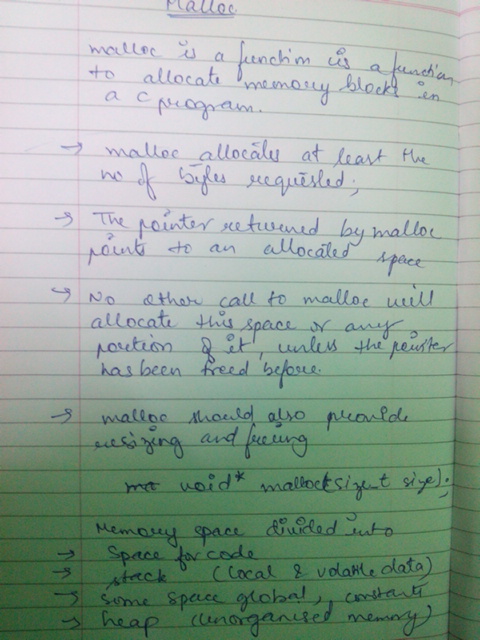 Malloc
malloc is a function is a function
to allocate memory blocks in
a C program.
→ malloc allocates at least the
no of bytes requested;
→ The pointer returned by malloc
points to an allocated space
→ No other call to malloc will
allocate this space or any
portion of it, unless the pointer
has been freed before.
→ malloc should also provide
resizing and freeing
void* malloc(size_t size);
Memory space divided into
→ Space for code
→ stack (local & volatile data)
→ some space global, constants
→ heap (unorganised memory)